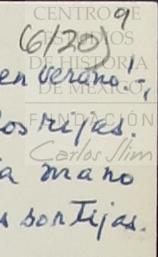 CENTRO DE
ESTUDIOS
DE HISTORIA
DE MÉXICO
FUNDACIÓN
Carlos Slim
9
(6/20)
en verano!-,
los rijas.
a mano
s sortijas.